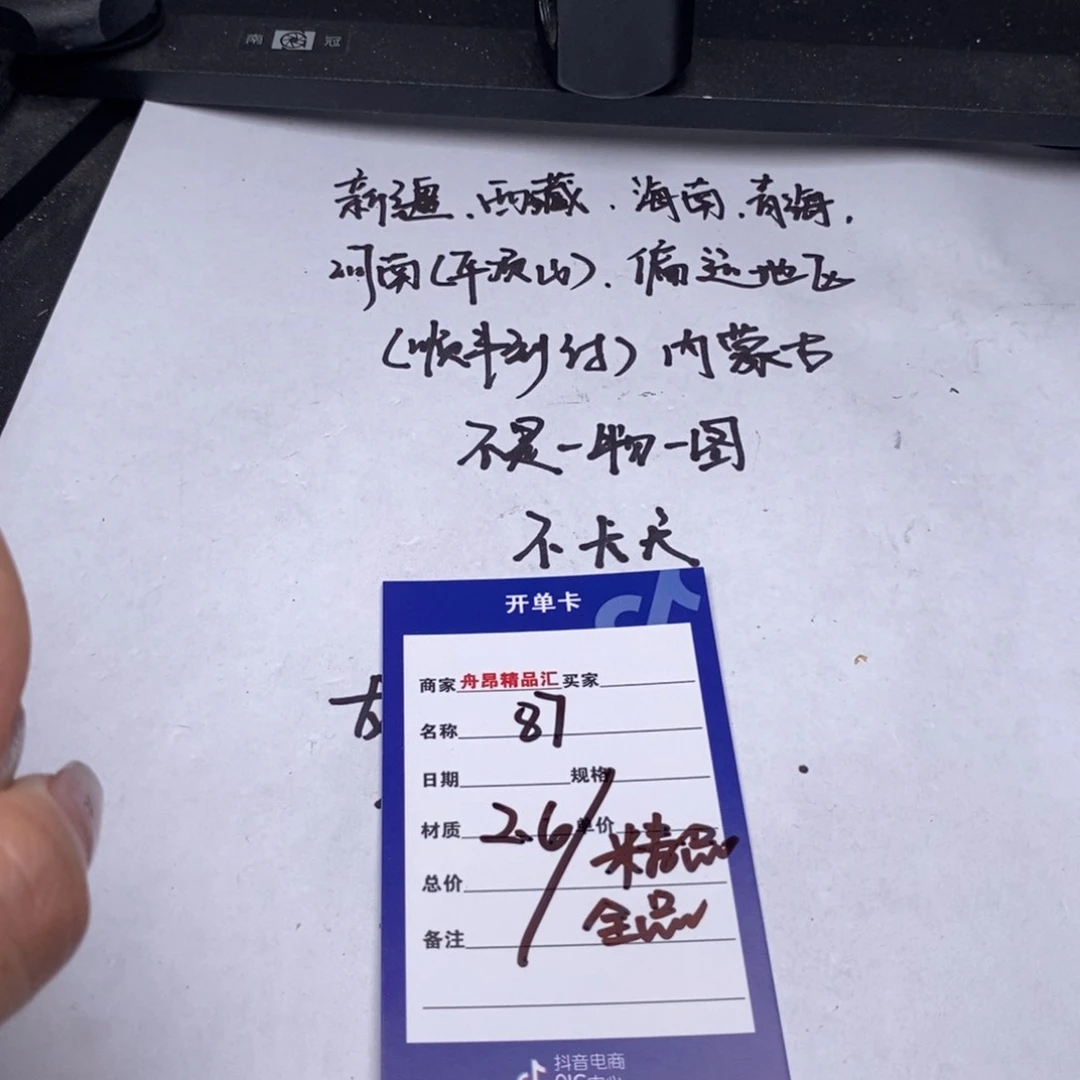 南 冠
新疆、西藏、海南、青海,
河南(平顶山)、偏远地区
(顺丰到付)内蒙古
不是一物一图
不卡天
开单卡
商家 舟昂精品汇 买家
名称 87
日期 规格
材质 2.6/ 单价 精品
总价 全品
备注
抖音电商
QIC中心